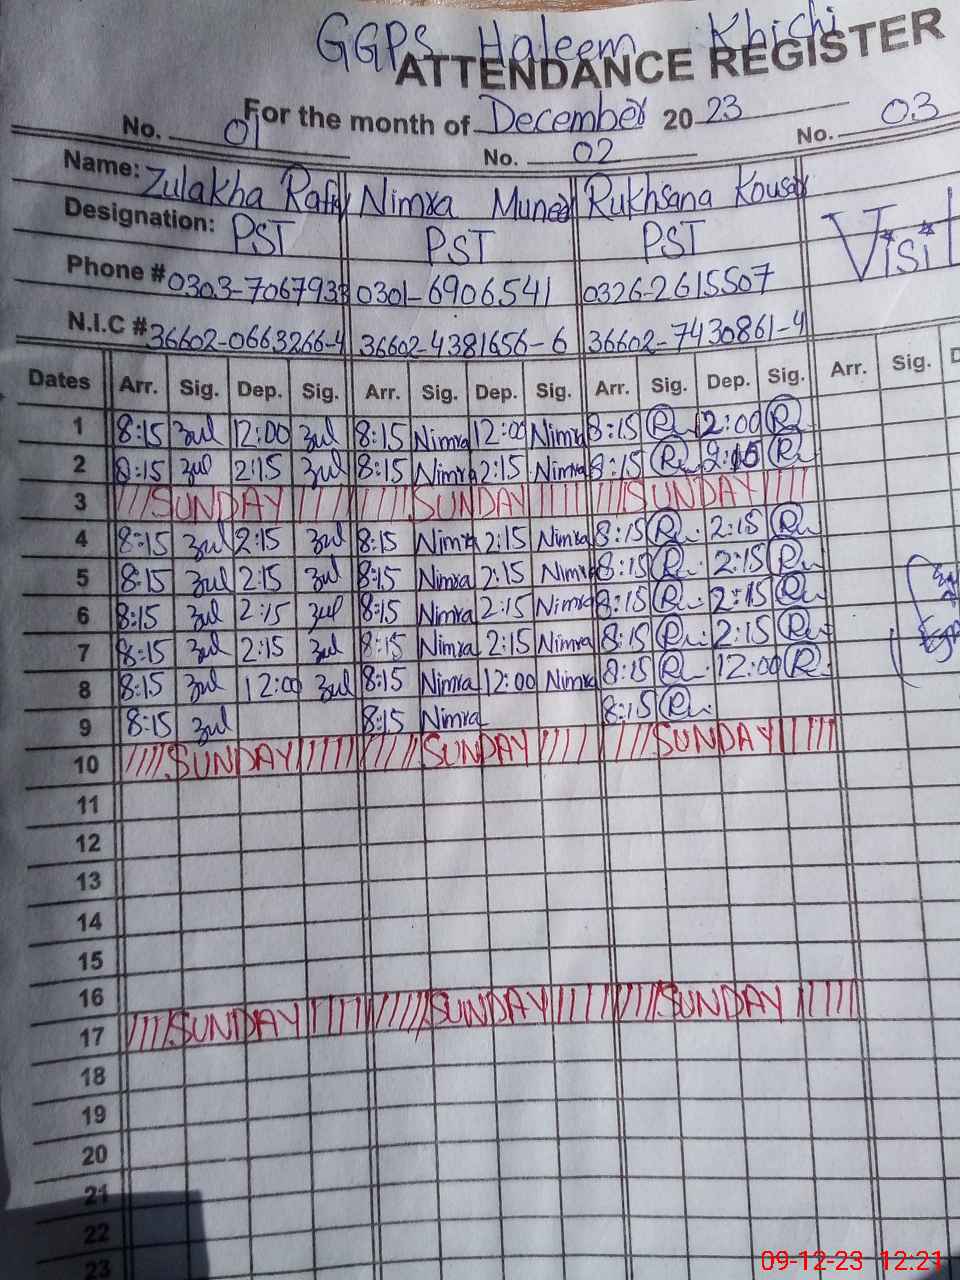 GGPS Haleem Khichi
ATTENDANCE REGISTER
For the month of December 2023
No. 01 No. 02 No. 03
Name: Zulakha Rafiq Nimra Muneer Rukhsana Kousar
Designation: PST PST PST Visit
Phone # 0303-7067933 0301-6906541 0326-2615507
N.I.C # 36602-0663266-4 36602-4381656-6 36602-7430861-4
Dates Arr. Sig. Dep. Sig. Arr. Sig. Dep. Sig. Arr. Sig. Dep. Sig. Arr. Sig. D
1 8:15 Zul 12:00 Zul 8:15 Nimra 12:00 Nimra 8:15 Ru 12:00 Ru
2 8:15 Zul 2:15 Zul 8:15 Nimra 2:15 Nimra 8:15 Ru 2:15 Ru
3 SUNDAY SUNDAY SUNDAY
4 8:15 Zul 2:15 Zul 8:15 Nimra 2:15 Nimra 8:15 Ru 2:15 Ru
5 8:15 Zul 2:15 Zul 8:15 Nimra 2:15 Nimra 8:15 Ru 2:15 Ru
6 8:15 Zul 2:15 Zul 8:15 Nimra 2:15 Nimra 8:15 Ru 2:15 Ru
7 8:15 Zul 2:15 Zul 8:15 Nimra 2:15 Nimra 8:15 Ru 2:15 Ru
8 8:15 Zul 12:00 Zul 8:15 Nimra 12:00 Nimra 8:15 Ru 12:00 Ru
9 8:15 Zul 8:15 Nimra 8:15 Ru
10 SUNDAY SUNDAY SUNDAY
11
12
13
14
15
16
17 SUNDAY SUNDAY SUNDAY
18
19
20
21
22
23
09-12-23 12:21